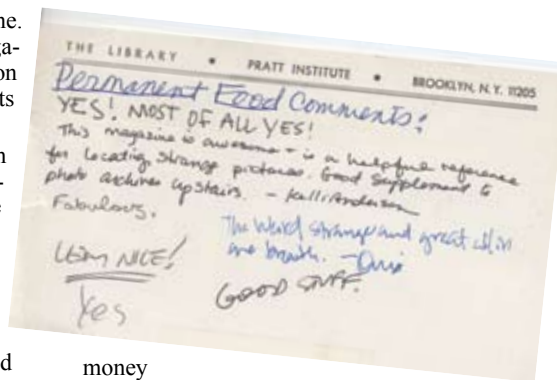 ne.
ga-
on
ts
n
-
d
money
THE LIBRARY • PRATT INSTITUTE • BROOKLYN, N.Y. 11205
Permanent Food Comments:
YES! MOST OF ALL YES!
This magazine is awesome + is a helpful reference
for locating strange pictures. Good supplement to
photo archives upstairs. – Kelli Anderson
Fabulous.
The weird strange and great all in
one breath. –
NICE!
Yes
GOOD STUFF.